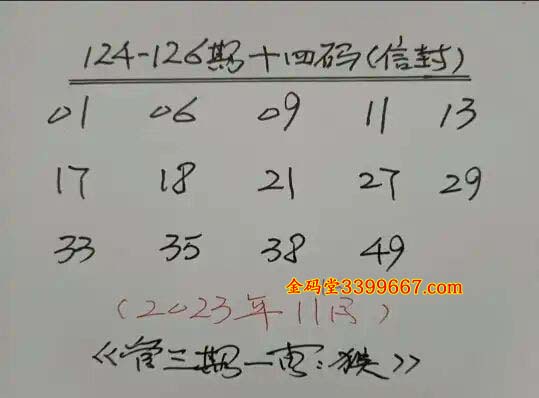 124-126期十四码(信封)
01 06 09 11 13
17 18 21 27 29
33 35 38 49
金码堂3399667.com
(2023年11月)
《管三期一肖:猴》